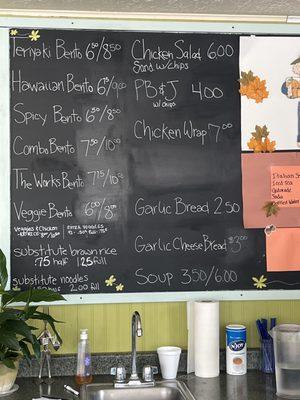 Teriyaki Bento 6⁵⁰/8⁵⁰
Hawaiian Bento 6⁷⁵/9⁰⁰
Spicy Bento 6⁵⁰/8⁵⁰
Combo Bento 7⁵⁰/10⁰⁰
The Works Bento 7⁷⁵/10⁵⁰
Veggie Bento 6⁰⁰/8⁰⁰
Veggies & Chicken
substitute brown rice
.75 half 1.25 full
substitute noodles
half 2.00 full
Chicken Salad 6.00
Sand w/chips
PB&J 4.00
w/chips
Chicken Wrap 7.00
Garlic Bread 2.50
Garlic Cheese Bread
Soup 3.50/6.00
Italian
Iced tea